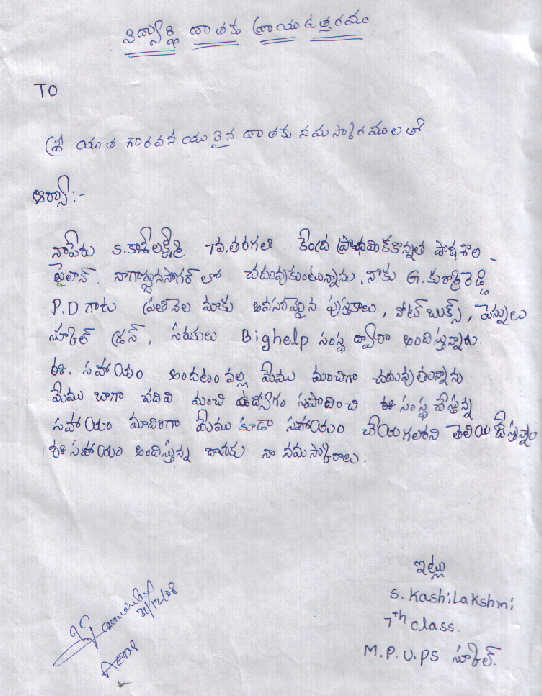 విద్యార్థి దాతకు వ్రాయు ఉత్తరము
TO
శ్రీ యుత గౌరవనీయులైన దాతకు నమస్కారములతో
ఆర్యా:-
నాపేరు S. కాశీలక్ష్మి 7వ తరగతి కేంద్ర ప్రాథమికోన్నత పాఠశాల-
పైలాన్. నాగార్జునసాగర్ లో చదువుకుంటున్నాను, నాకు G.
P.D గారు ప్రతినెల మాకు అవసరమైన పుస్తకాలు, నోట్ బుక్స్, పెన్నులు
స్కూల్ డ్రస్, సరుకులు Bighelp సంస్థ ద్వారా అందిస్తున్నారు
ఈ. సహాయం అందటం వల్ల మేము మంచిగా చదువుతున్నాను
మేము బాగా చదివి మంచి ఉద్యోగం సంపాదించి ఈ సంస్థ చేస్తున్న
సహాయం మాదిరిగా మేము కూడా సహాయం చేయగలరని తెలియచేస్తున్నాం
ఈ సహాయం అందిస్తున్న దాతకు నా నమస్కారాలు.
ఇట్లు
S. Kashilakshmi
7th class.
M.P.U.PS స్కూల్.